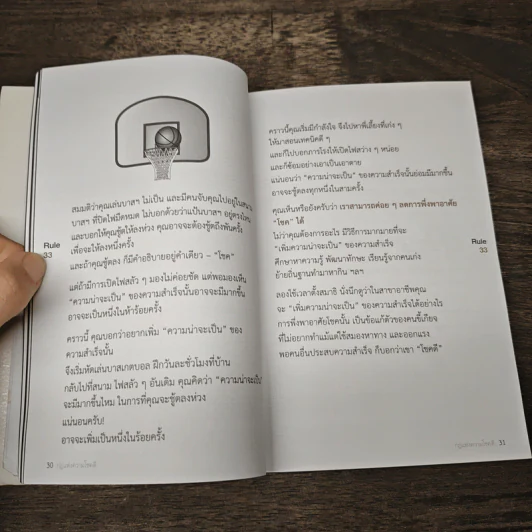 สมมติว่าคุณเล่นบาสฯ ไม่เป็น และมีคนจับคุณไปอยู่ในสนาม
บาสฯ ที่ปิดไฟมืดหมด ไม่บอกด้วยว่าแป้นบาสฯ อยู่ตรงไหน
และบอกให้คุณชู้ตให้ลงห่วง คุณอาจจะต้องชู้ตถึงพันครั้ง
เพื่อจะให้ลงหนึ่งครั้ง
และถ้าคุณชู้ตลง ก็มีคำอธิบายอยู่คำเดียว – "โชค"
Rule
33
แต่ถ้ามีการเปิดไฟสลัว ๆ มองไม่ค่อยชัด แต่พอมองเห็น
"ความน่าจะเป็น" ของความสำเร็จนั้นอาจจะมีมากขึ้น
อาจจะเป็นหนึ่งในห้าร้อยครั้ง
คราวนี้ คุณบอกว่าอยากเพิ่ม "ความน่าจะเป็น" ของ
ความสำเร็จนั้น
จึงเริ่มหัดเล่นบาสเกตบอล ฝึกวันละชั่วโมงที่บ้าน
กลับไปที่สนาม ไฟสลัว ๆ อันเดิม คุณคิดว่า "ความน่าจะเป็น"
จะมีมากขึ้นไหม ในการที่คุณจะชู้ตลงห่วง
แน่นอนครับ!
อาจจะเพิ่มเป็นหนึ่งในร้อยครั้ง
30 กฎแห่งความโชคดี
คราวนี้คุณเริ่มมีกำลังใจ จึงไปหาพี่เลี้ยงที่เก่ง ๆ
ให้มาสอนเทคนิคดี ๆ
และก็ไปบอกภารโรงให้เปิดไฟสว่าง ๆ หน่อย
และก็ซ้อมอย่างเอาเป็นเอาตาย
แน่นอนว่า "ความน่าจะเป็น" ของความสำเร็จนั้นย่อมมีมากขึ้น
อาจจะชู้ตลงทุกหนึ่งในสามครั้ง
คุณเห็นหรือยังครับว่า เราสามารถค่อย ๆ ลดการพึ่งพาอาศัย
"โชค" ได้
ไม่ว่าคุณต้องการอะไร มีวิธีการมากมายที่จะ
"เพิ่มความน่าจะเป็น" ของความสำเร็จ
ศึกษาหาความรู้ พัฒนาทักษะ เรียนรู้จากคนเก่ง
ย้ายถิ่นฐานทำมาหากิน ฯลฯ
Rule
33
ลองใช้เวลาตั้งสมาธิ นั่งนึกดูว่าในสาขาอาชีพคุณ
จะ "เพิ่มความน่าจะเป็น" ของความสำเร็จได้อย่างไร
การพึ่งพาอาศัยโชคนั้น เป็นข้อแก้ตัวของคนขี้เกียจ
ที่ไม่อยากทำแม้แต่ใช้สมองหาทาง และออกแรง
พอคนอื่นประสบความสำเร็จ ก็บอกว่าเขา "โชคดี"
กฎแห่งความโชคดี 31